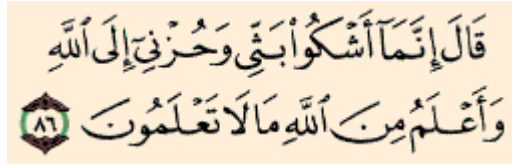 قَالَ إِنَّمَآ أَشْكُوا۟ بَثِّى وَحُزْنِىٓ إِلَى ٱللَّهِ
وَأَعْلَمُ مِنَ ٱللَّهِ مَا لَا تَعْلَمُونَ ٨٦